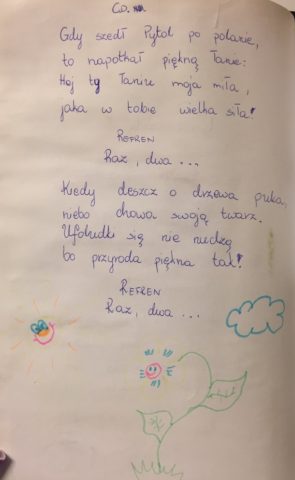 Cd.
Gdy szedł Pytol po polanie,
to napotkał piękną Łanię:
Hej ty Łaniu moja miła,
jaka w tobie wielka siła!
REFREN
Raz, dwa ...
Kiedy deszcz o drzewa puka,
niebo chowa swoją twarz.
Ufoludki się nie nudzą
bo przyroda piękna tak!
REFREN
Raz, dwa ...